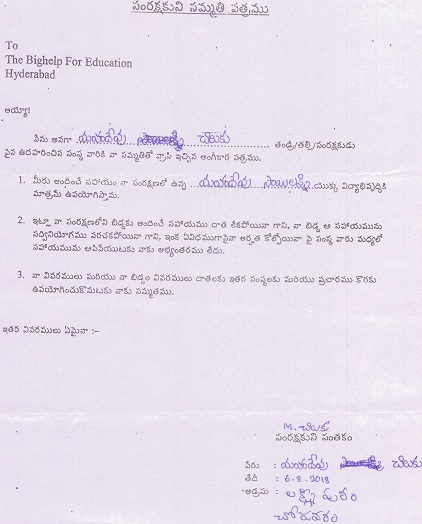 సంరక్షకుని సమ్మతి పత్రము
To
The Bighelp For Education
Hyderabad
అయ్యా!
నేను అనగా యడదేవు చిలుకు తండ్రి/తల్లి/సంరక్షకుడు
పైన ఉదహరించిన సంస్థ వారికి నా సమ్మతితో వ్రాసి ఇచ్చిన అంగీకార పత్రము.
1. మీరు అందించే సహాయం నా సంరక్షణలో ఉన్న యొక్క విద్యాభివృద్ధికి
మాత్రమే ఉపయోగిస్తాను.
2. ఇట్లా నా సంరక్షణలోని బిడ్డకు అందించే సహాయము దాత లేకపోయినా గాని, నా బిడ్డ ఆ సహాయమును
సద్వినియోగము పరచకపోయినా గాని, ఇంక ఏవిధముగానైనా అర్హత కోల్పోయినా పై సంస్థ వారు మధ్యలో
సహాయమును ఆపివేయుటకు నాకు అభ్యంతరము లేదు.
3. నా వివరములు మరియు నా బిడ్డం వివరములు దాతలకు ఇతర సంస్థలకు మరియు ప్రచారము కొరకు
ఉపయోగించుకొనుటకు నాకు సమ్మతము.
ఇతర వివరములు ఏమైనా :-
M. చిలుకు
సంరక్షకుని సంతకం
పేరు : చిలుకు
తేదీ : 6-8-2018
అడ్రసు : లక్ష్మీ పురం